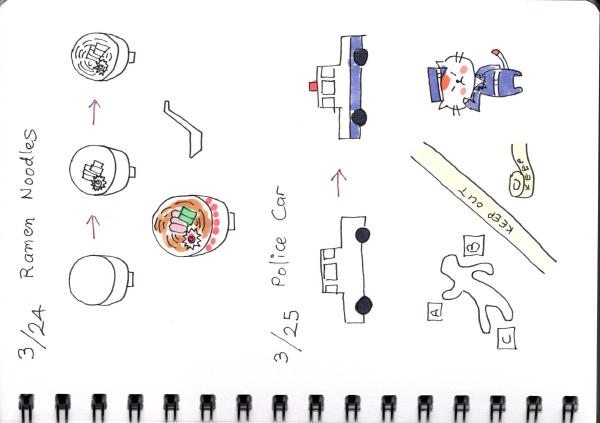 3/24 Ramen Noodles
3/25 Police Car
KEEP OUT
KEEP
A
B
C